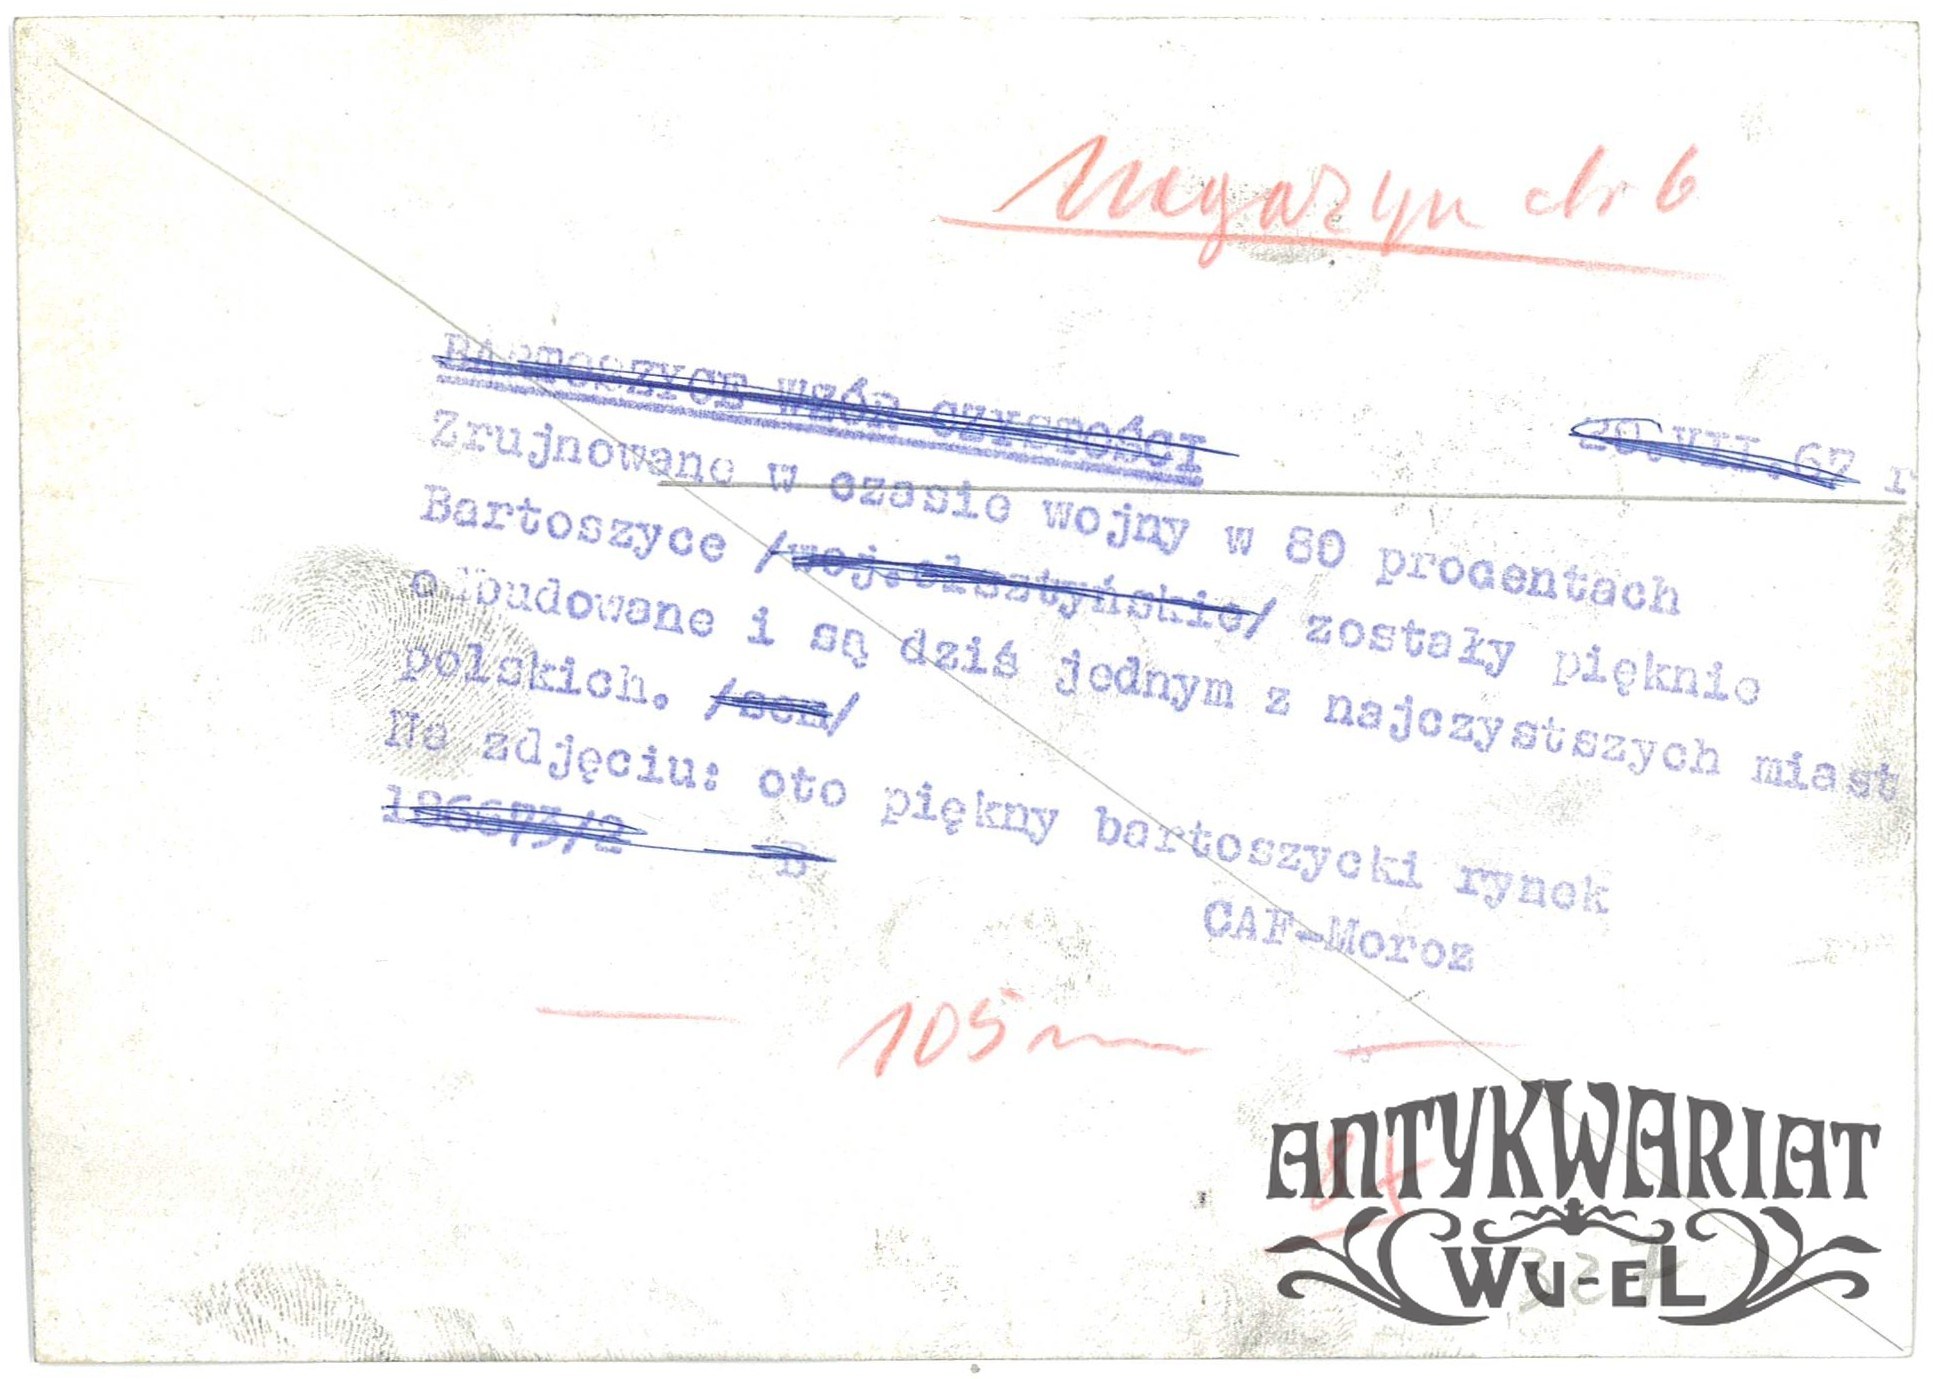 Magazyn str 6
BARTOSZYCE WZÓR CZYSTOŚCI 20.VII.67 r
Zrujnowane w czasie wojny w 80 procentach
Bartoszyce /woj.olsztyńskie/ zostały pięknie
odbudowane i są dziś jednym z najczystszych miast
polskich. /scm/
Na zdjęciu: oto piękny bartoszycki rynek
186673/2 B
CAF-Moroz
105 mm
ANTYKWARIAT
WU-EL